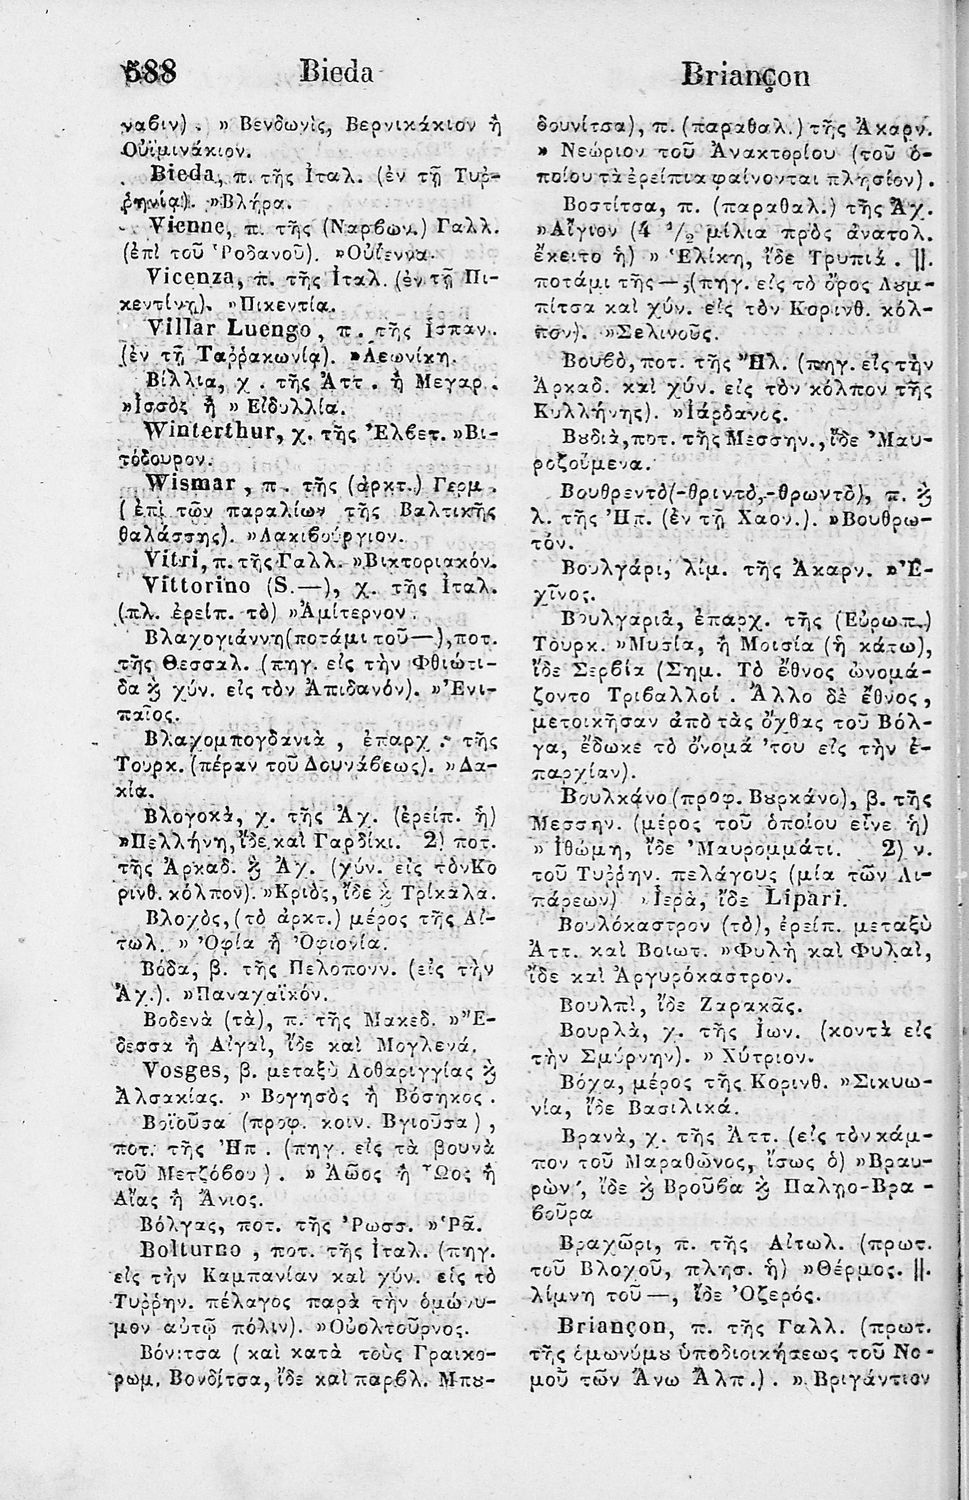 588 Bieda Briançon
ναβιν). » Βενδωνὶς, Βερνικάκιον ἢ
Οὐϊμινάκιον.
Bieda, π. τῆς Ἰταλ. (ἐν τῇ Τυῤ-
ῥηνίᾳ). »Βλήρα.
Vienne, π. τῆς (Ναρβων.) Γαλλ.
(ἐπὶ τοῦ Ῥοδανοῦ). »Οὐΐεννα.
Vicenza, π. τῆς Ἰταλ. (ἐν τῇ Πι-
κεντίνῃ). »Πικεντία.
Villar Luengo, π. τῆς Ἱσπαν.
(ἐν τῇ Ταῤῥακωνίᾳ). »Λεωνίκη.
Βίλλια, χ. τῆς Ἀττ. ἢ Μεγαρ.
»Ἰσσὸς ἢ » Εἰδυλλία.
Winterthur, χ. τῆς Ἑλβετ. »Βι-
τόδουρον.
Wismar, π. τῆς (ἀρκτ.) Γερμ.
(ἐπὶ τῶν παραλίων τῆς Βαλτικῆς
θαλάσσης). »Λακιβούργιον.
Vitri, π. τῆς Γαλλ. »Βικτοριακόν.
Vittorino (S.—), χ. τῆς Ἰταλ.
(πλ. ἐρείπ. τὸ) »Ἀμίτερνον.
Βλαχογιάννη(ποτάμι τοῦ—),ποτ.
τῆς Θεσσαλ. (πηγ. εἰς τὴν Φθιώτι-
δα ϗ χύν. εἰς τὸν Ἀπιδανόν). »Ἐνι-
παῖος.
Βλαχομπογδανιὰ, ἐπαρχ. τῆς
Τουρκ. (πέραν τοῦ Δουνάβεως). »Δα-
κία.
Βλογοκὰ, χ. τῆς Ἀχ. (ἐρείπ. ἡ)
»Πελλήνη, ἴδε καὶ Γαρδίκι. 2) ποτ.
τῆς Ἀρκαδ. ϗ Ἀχ. (χύν. εἰς τὸν Κο
ρινθ. κόλπον). »Κριὸς, ἴδε ϗ Τρίκαλα.
Βλοχὸς, (τὸ ἀρκτ.) μέρος τῆς Αἰ-
τωλ. » Ὀφία ἢ Ὀφιονία.
Βόδα, β. τῆς Πελοπονν. (εἰς τὴν
Ἀχ.). »Παναχαϊκόν.
Βοδενὰ (τὰ), π. τῆς Μακεδ. »Ἔ-
δεσσα ἢ Αἰγαὶ, ἴδε καὶ Μογλενά.
Vosges, β. μεταξὺ Λοθαριγγίας ϗ
Ἀλσακίας. » Βογησὸς ἢ Βόσηκος.
Βοϊοῦσα (προφ. κοιν. Βγιοῦσα),
ποτ. τῆς Ἠπ. (πηγ. εἰς τὰ βουνὰ
τοῦ Μετζόβου). » Ἀῶος ἢ Ὦος ἢ
Αἴας ἢ Ἄνιος.
Βόλγας, ποτ. τῆς Ῥωσσ. »Ῥᾶ.
Bolturno, ποτ. τῆς Ἰταλ. (πηγ.
εἰς τὴν Καμπανίαν καὶ χύν. εἰς τὸ
Τυῤῥην. πέλαγος παρὰ τὴν ὁμώνυ-
μον αὐτῷ πόλιν). »Οὐολτοῦρνος.
Βόνιτσα (καὶ κατὰ τοὺς Γραικο-
ρωμ. Βονδίτσα, ἴδε καὶ παρβλ. Μπȣ-
δουνίτσα), π. (παραθαλ.) τῆς Ἀκαρν.
» Νεώριον τοῦ Ἀνακτορίου (τοῦ ὁ-
ποίου τὰ ἐρείπια φαίνονται πλησίον).
Βοστίτσα, π. (παραθαλ.) τῆς Ἀχ.
»Αἴγιον (4 1/2 μίλια πρὸς ἀνατολ.
ἔκειτο ἡ) » Ἑλίκη, ἴδε Τρυπιά. ||.
ποτάμι τῆς —,(πηγ. εἰς τὸ ὄρος Λυμ-
πίτσα καὶ χύν. εἰς τὸν Κορινθ. κόλ-
πον). »Σελινοῦς.
Βουβὸ, ποτ. τῆς Ἠλ. (πηγ. εἰς τὴν
Ἀρκαδ. καὶ χύν. εἰς τὸν κόλπον τῆς
Κυλλήνης). »Ἰάρδανος.
Βȣδιὰ, ποτ. τῆς Μεσσην., ἴδε Μαυ-
ροζούμενα.
Βουθρεντὸ(-θριντὸ,-θρωντὸ), π. ϗ
λ. τῆς Ἠπ. (ἐν τῇ Χαον.). »Βουθρω-
τόν.
Βουλγάρι, λίμ. τῆς Ἀκαρν. »Ἐ-
χῖνος.
Βουλγαριὰ, ἐπαρχ. τῆς (Εὐρωπ.)
Τουρκ. »Μυσία, ἢ Μοισία (ἡ κάτω),
ἴδε Σερβία (Σημ. Τὸ ἔθνος ὠνομά-
ζοντο Τριβαλλοί. Ἄλλο δὲ ἔθνος,
μετοικῆσαν ἀπὸ τὰς ὄχθας τοῦ Βόλ-
γα, ἔδωκε τὸ ὄνομά 'του εἰς τὴν ἐ-
παρχίαν).
Βουλκάνο (προφ. Βȣρκάνο), β. τῆς
Μεσσην. (μέρος τοῦ ὁποίου εἶνε ἡ)
» Ἰθώμη, ἴδε Μαυρομμάτι. 2) ν.
τοῦ Τυῤῥην. πελάγους (μία τῶν Λι-
πάρεων) »Ἱερὰ, ἴδε Lipari.
Βουλόκαστρον (τὸ), ἐρείπ. μεταξὺ
Ἀττ. καὶ Βοιωτ. »Φυλὴ καὶ Φυλαὶ,
ἴδε καὶ Ἀργυρόκαστρον.
Βουλπὶ, ἴδε Ζαρακᾶς.
Βουρλὰ, χ. τῆς Ἰων. (κοντὰ εἰς
τὴν Σμύρνην). » Χύτριον.
Βόχα, μέρος τῆς Κορινθ. »Σικυω-
νία, ἴδε Βασιλικά.
Βρανὰ, χ. τῆς Ἀττ. (εἰς τὸν κάμ-
πον τοῦ Μαραθῶνος, ἴσως ὁ) »Βραυ-
ρὼν, ἴδε ϗ Βροῦβα ϗ Παληο-Βρα-
βοῦρα
Βραχῶρι, π. τῆς Αἰτωλ. (πρωτ.
τοῦ Βλοχοῦ, πλησ. ἡ) »Θέρμος. ||.
λίμνη τοῦ —, ἴδε Ὀζερός.
Briançon, π. τῆς Γαλλ. (πρωτ.
τῆς ὁμωνύμȣ ὑποδιοικήσεως τοῦ Νο-
μοῦ τῶν Ἄνω Ἄλπ.). » Βριγάντιον